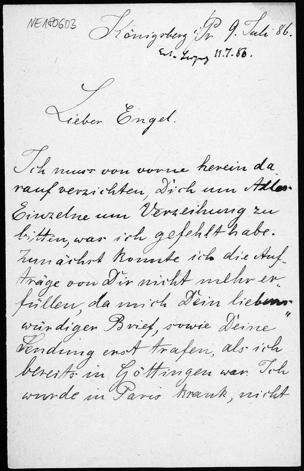 NE180603
Königsberg i/Pr 9. Juli 86.
11.7.86.
Lieber Engel.
Ich muss von vorne herein da
rauf verzichten, Dich um Alles
Einzelne um Verzeihung zu
bitten, was ich gefehlt habe.
Zunächst konnte ich die Auf-
träge von Dir nicht mehr er-
füllen, da mich Dein liebens
würdiger Brief, sowie Deine
Sendung erst trafen, als ich
bereits in Göttingen war. Ich
wurde in Paris krank, nicht